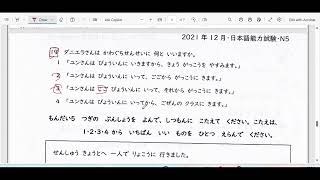 2021年12月・日本語能力試験・N5
ダニエラさんは かわぐちせんせいに 何と いいますか。
1 「ユンさんは びょういんに いきますから、きょう がっこうを やすみます。」
2 「ユンさんは びょういんに いって、ごごから がっこうに きます。」
3 「ユンさんは びょういんに いって、それから がっこうに きます。」
4 「ユンさんは びょういんに いってから、ごぜんの クラスに きます。」
もんだい5 つぎの ぶんしょうを よんで、しつもんに こたえて ください。こたえは、
1・2・3・4 から いちばん いい ものを ひとつ えらんで ください。
せんしゅう きょうとへ 一人で りょこうに 行きました。